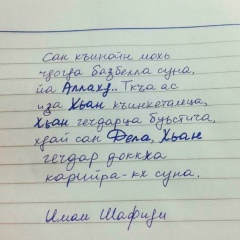 Сан къинойн мохь
чӀогӀа базбелла суна,
йа Аллахӏ.. Ткъа ас
иза Хьан къинхетамца,
Хьан гечдарца буьстича,
хӏай сан Дела, Хьан
гечдар доккха
карийра-кх суна.
Имам Шафиӏи